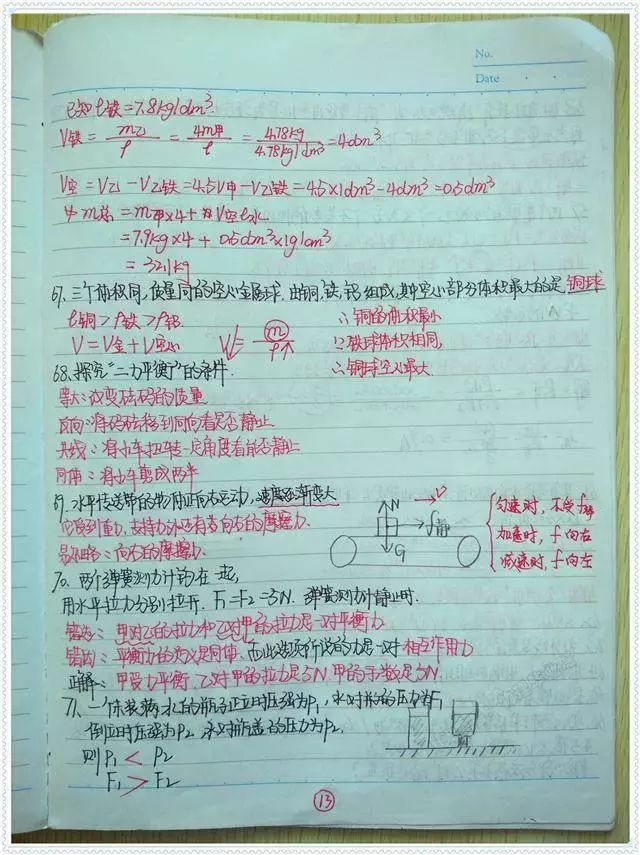 No.
Date
已知ρ铁=7.8kg/dm³
V铁 = m乙/ρ = 4m甲/ρ = 4.78kg/4.78kg/dm³ = 4dm³
V空 = V乙 - V乙铁 = 4.5V甲 - V乙铁 = 4.5×1dm³ - 4dm³ = 0.5dm³
m总 = m甲×4 + V空ρ水
= 7.9kg×4 + 0.5dm³×1g/cm³
= 32.1kg
67、三个体积同,质量同的空心金属球,由铜,铁,铝组成,其中空心部分体积最大的是 铜球
ρ铜>ρ铁>ρ铝 ∴铜的体积最小
V=V金+V空心 V↓=m/ρ↑ ∵铁球体积相同,
68、探究“二力平衡”的条件. ∴铜球空心最大
等大:改变砝码的质量
反向:将砝码移到同向看是否静止
共线:将小车扭转一定角度看能否静止
同体:将小车剪成两半
69、水平传送带的物体正向右运动,速度逐渐变大
它受到重力,支持力外还有方向右的摩擦力
易错:向右的摩擦力.
N
V
f静
G
匀速时,不受f静
加速时,f向右
减速时,f向左
70、两个弹簧测力计钩在一起,
用水平拉力分别拉开. F₁=F₂=3N. 弹簧测力计静止时.
错选:甲对乙的拉力和乙对甲的拉力是一对平衡力
错因:平衡力的定义是同体,而此选项所说的力是一对相互作用力
正解:甲受力平衡,乙对甲的拉力是3N,甲的示数是3N.
71、一个未装满水的瓶子正立时压强为P₁,水对瓶的压力为F₁
倒立时压强为P₂ 水对瓶盖的压力为P₂.
则 P₁ < P₂
F₁ > F₂
13